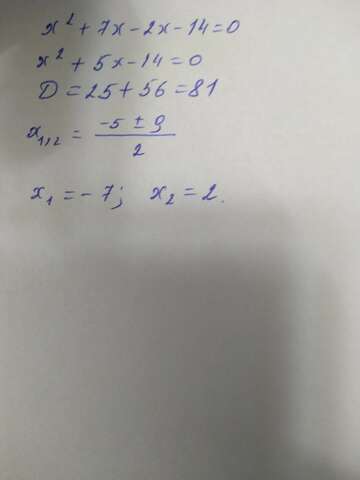 x² + 7x - 2x - 14 = 0
x² + 5x - 14 = 0
D = 25 + 56 = 81
x₁,₂ = (-5 ± 9)/2
x₁ = - 7; x₂ = 2.